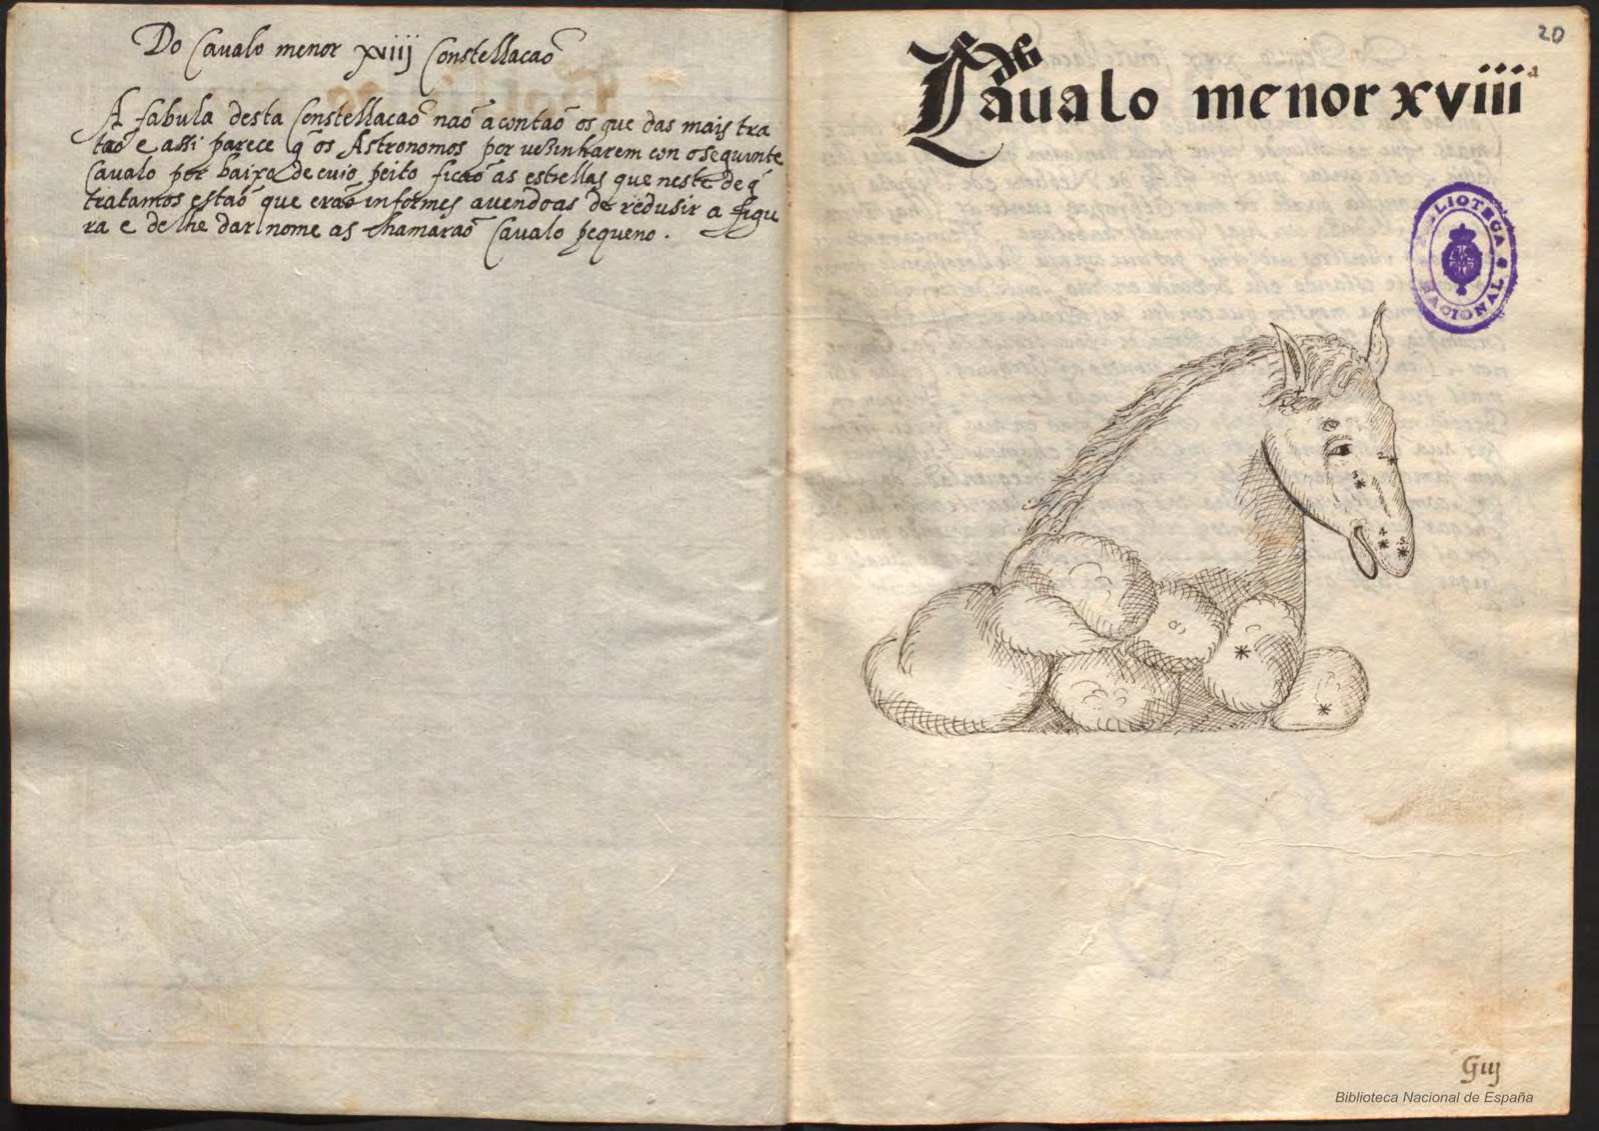 Do Cavalo menor xviij Constellacaõ
A fabula desta Constellacaõ naõ a contaõ os que das mais tra
taõ e assi parece q̃ os Astronomos por vesinharem con o seguinte
Cavalo por baixo de cuio peito ficaõ as estrellas que neste de q̃
tratamos estaõ que eraõ informes avendoas de redusir a figu
ra e de lhe dar nome as chamaraõ Cavalo pequeno.
20
Cavalo menor xviiiª
BIBLIOTECA NACIONAL
2
3
4
5
Giij
Biblioteca Nacional de España